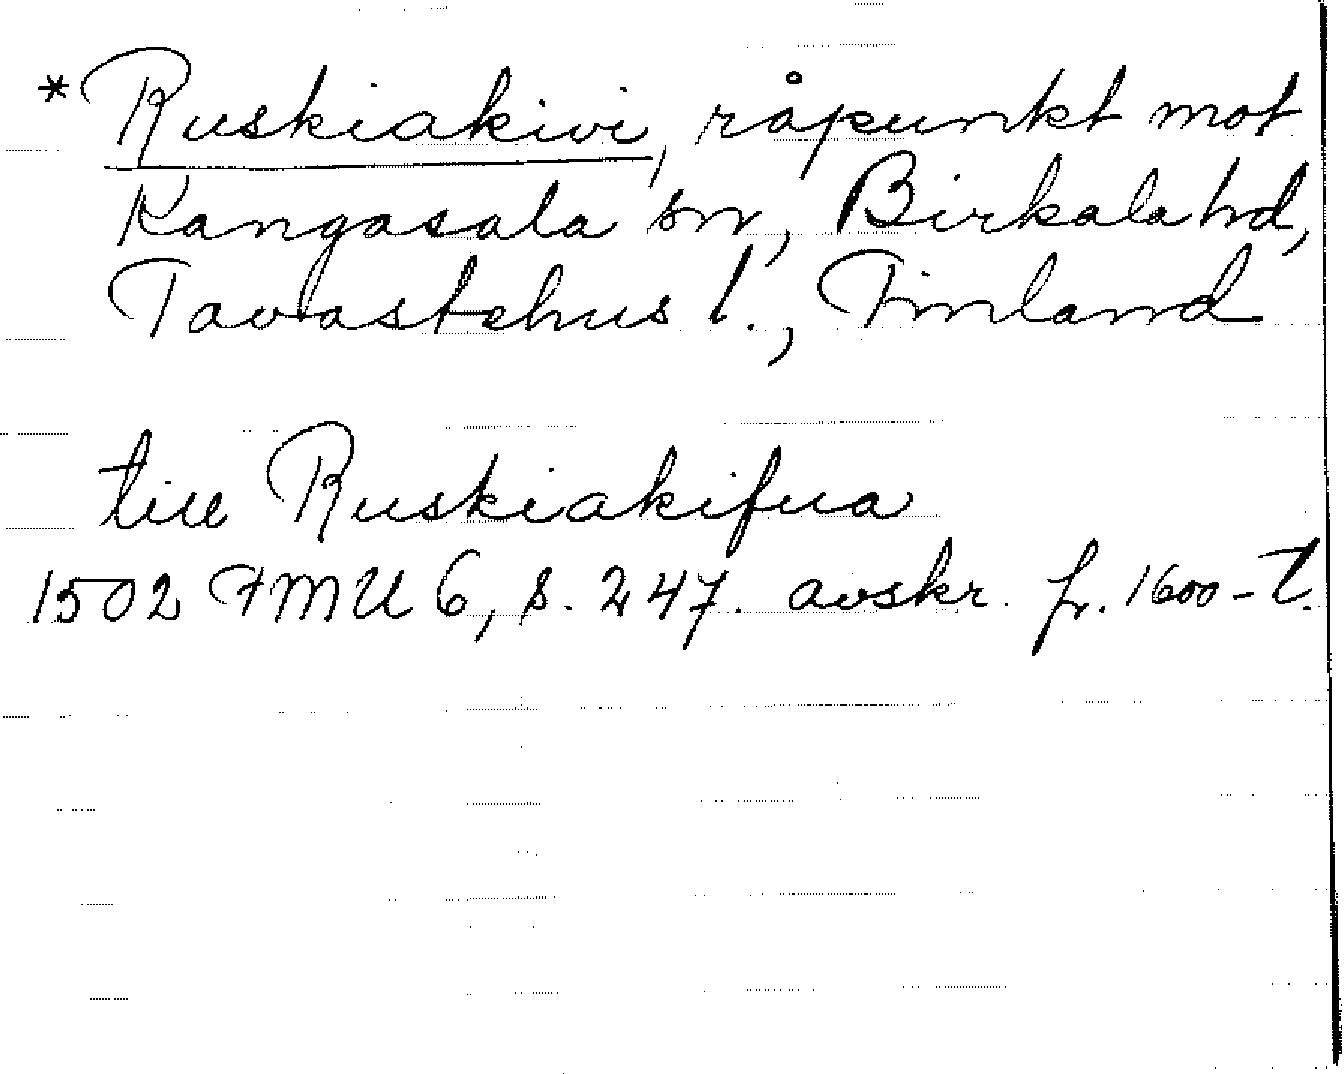 * Ruskiakivi, råpunkt mot
Kangasala sn, Birkala hd,
Tavastehus l., Finland
till Ruskiakifua
1502 FMU 6, s. 247. avskr. fr. 1600-t.